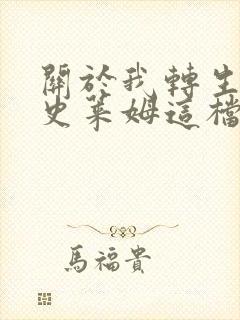 關於我轉生
史萊姆這檔
馬福貴